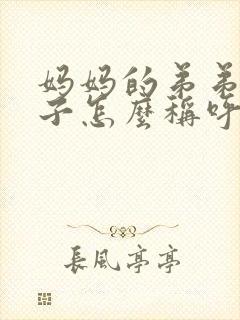 妈妈的弟弟
子怎麼稱呼
長風亭亭